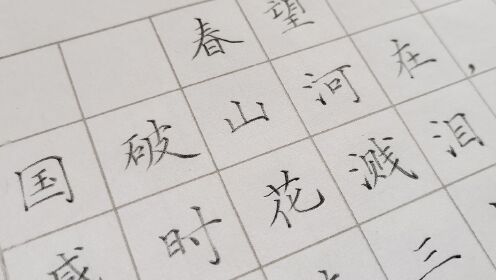 春望
国破山河在，
感时花溅泪
三